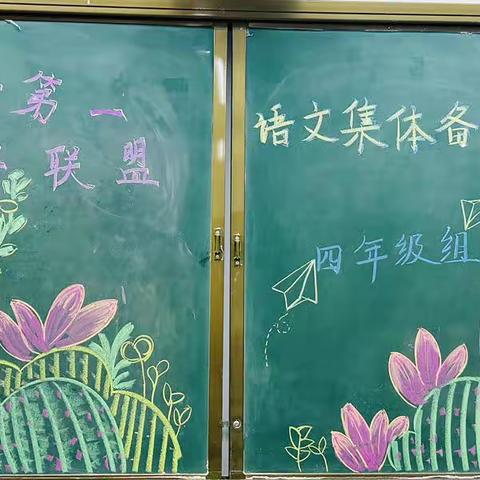 第一
联盟
语文集体备
四年级组